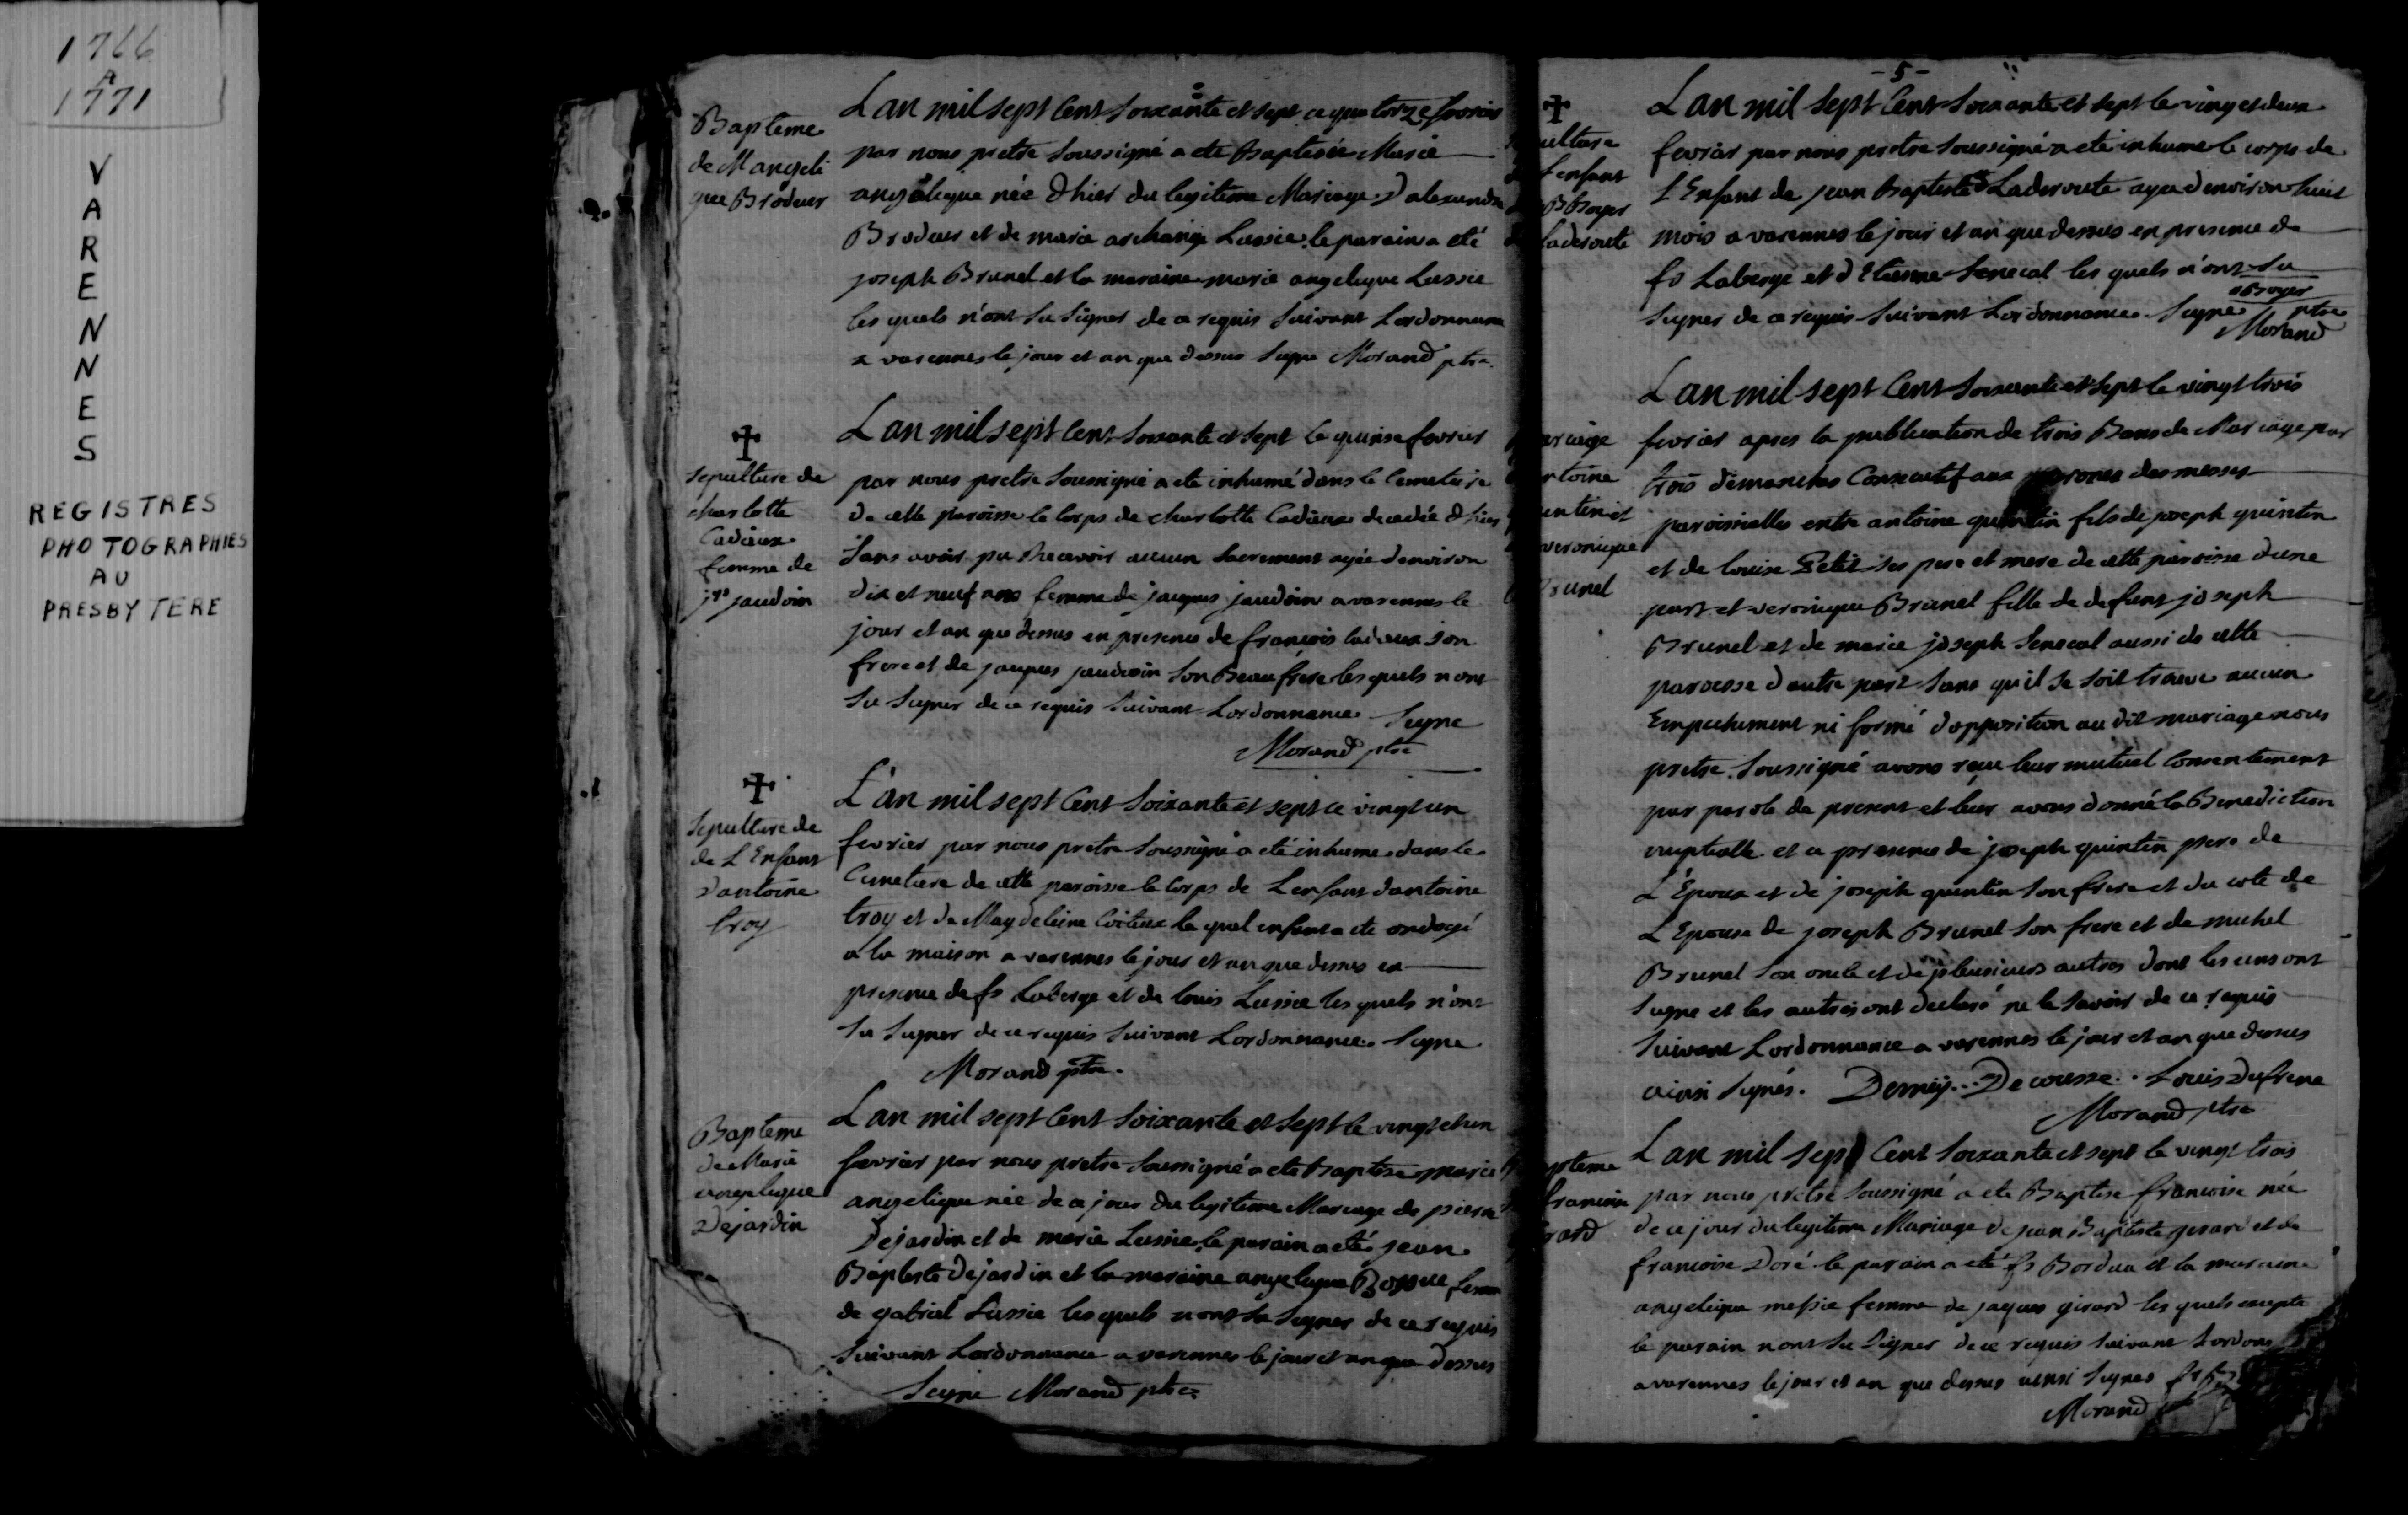 1766
A
1771
V
A
R
E
N
N
E
S
REGISTRES
PHOTOGRAPHIES
AU
PRESBYTERE
Bapteme
de M angeli
que Brodeur
Lan mil sept Cent soixante et sept ce quatorze fevrier
par nous pretre soussigné a ete Baptisée Marie
angelique née d hier du legitime Mariage d alexandre
Brodeur et de marie archange Lussie, le parain a eté
joseph Brunel et la maraine marie angelique Lussie
les quels n'ont su signer de ce requis suivant Lordonnance
a varennes le jour et an que dessus signe Morand ptre
sepulture de
charlotte
Cadieux
femme de
jqs jaudoin
Lan mil sept Cent soixante et sept le quinse fevrier
par nous pretre soussigné a ete inhumé dans le Cemetiere
de cette paroisse le Corps de charlotte Cadieux decedée d hier
sans avoir pu Recevoir aucun sacrement agée denviron
dix et neuf ans femme de jacques jaudoin a varennes le
jour et an que dessus en presence de francois cadieux son
frere et de jacques jaudoin son Beau frere les quels nont
su signer de ce requis suivant Lordonnance signe
Morand ptre
sepulture de
de L Enfant
dantoine
troy
L'an mil sept Cent soixante et sept ce vingt un
fevrier par nous pretre soussigné a eté inhume dans le
Cimetiere de cette paroisse le Corps de L enfant dantoine
troy et de Magdeleine le quel enfant a ete ondoyé
a la maison a varennes le jour et an que dessus en
presence de fs Laberge et de louis Lussie les quels n'ont
su signer de ce requis suivant Lordonnance signe
Morand ptre.
Bapteme
de Marie
angelique
Dejardin
Lan mil sept Cent soixante et sept le vingt et un
fevrier par nous pretre soussigné a ete Baptise marie
angelique née de ce jour du legitime Mariage de pierre
Dejardin et de marie Lussie, le parain a eté jean
Baptiste Dejardin et la maraine angelique femme
de gabriel Lussie les quels nont su signer de ce requis
suivant Lordonnance a varennes le jour et an que dessus
signe Morand ptre
-5-
ulture
enfant
Boyer
laderoute
Lan mil sept Cent soixante et sept le vingt deux
fevrier par nous pretre soussigné a eté inhumé le corps de
L'Enfant de jean Baptiste Laderoute agee d environ huit
mois a varennes le jour et an que dessus en presence de
fs Laberge et d Etienne Senecal les quels n'ont su
aBoyer
signer de ce requis suivant Lordonnance. signe ptre
Morand
ariage
ntoine
untin et
veronique
runel
Lan mil sept Cent soixante et sept le vingt trois
fevrier apres la publication de trois Bans de Mariage par
trois dimanches Consecutif aux prones des messes
paroisialles entre antoine quintin fils de joseph quintin
et de louise Petit ses pere et mere de cette paroisse dune
part et veronique Brunel fille de defunt joseph
Brunel et de marie joseph Senecal aussi de cette
paroesse d autre part sans qu'il se soit trouve aucun
Empechement ni formé d opposition au dit mariage nous
pretre soussigné avons reçu leur mutuel consentement
par parole de present et leur avons donné la Benediction
nuptialle et ce presence de joseph quintin pere de
L'Epoux et de joseph quintin son frere et du cote de
L Epouse de joseph Brunel son frere et de michel
Brunel son oncle et de plusieurs autres dont les uns ont
signe et les autres ont declaré ne le savoir de ce requis
suivant Lordonnance a varennes le jour et an que dessus
ainsi signés. Decousse.. Louis Dufrene
Morand ptre
pteme
francoise
rard
Lan mil sept Cent soixante et sept le vingt trois
par nous pretre soussigné a ete Baptise francoise née
de ce jour du legitime Mariage de jean Baptiste girard et de
francoise Doré le parain a eté fs Bordua et la maraine
angelique messie femme de jaques girard les quels excepte
le parain nont su signer de ce requis suivant Lordon
a varennes le jour et an que dessus ainsi signes
Morand